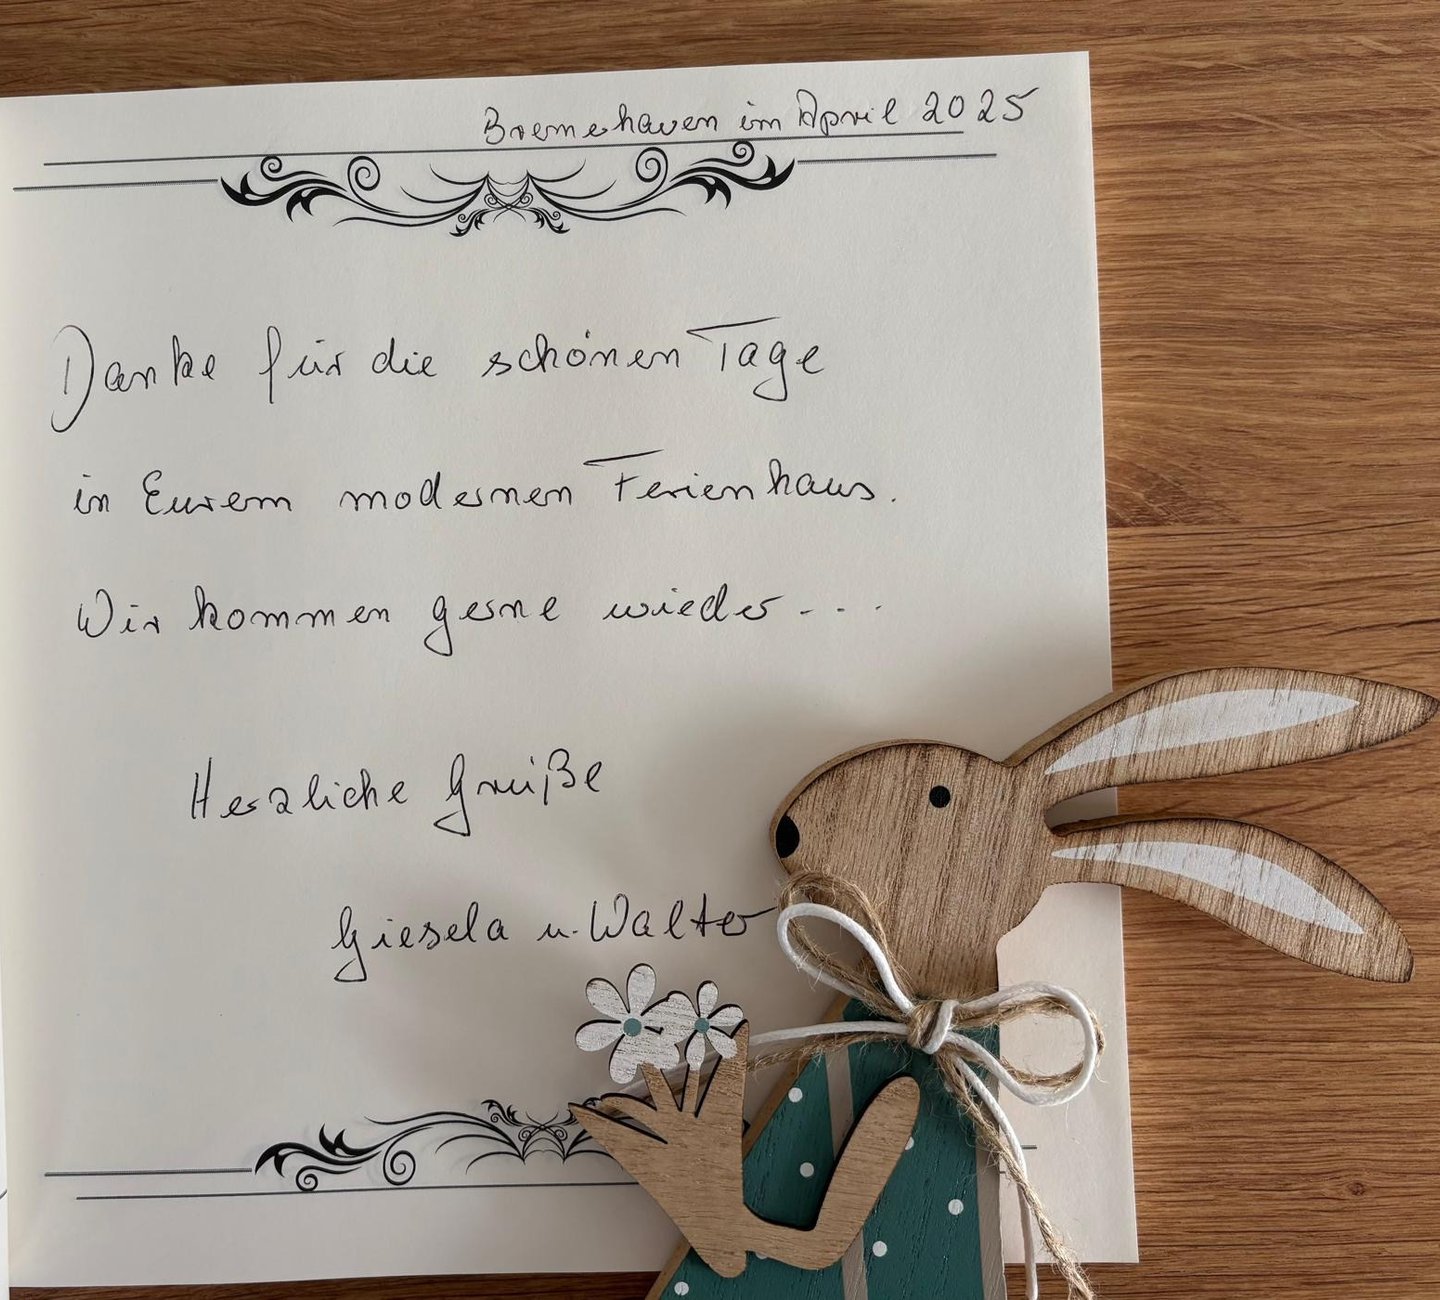 Bremehaven im April 2025
Danke für die schönen Tage
in Eurem modernen Ferienhaus.
Wir kommen gerne wieder...
Herzliche Grüße
Giesela u. Walter